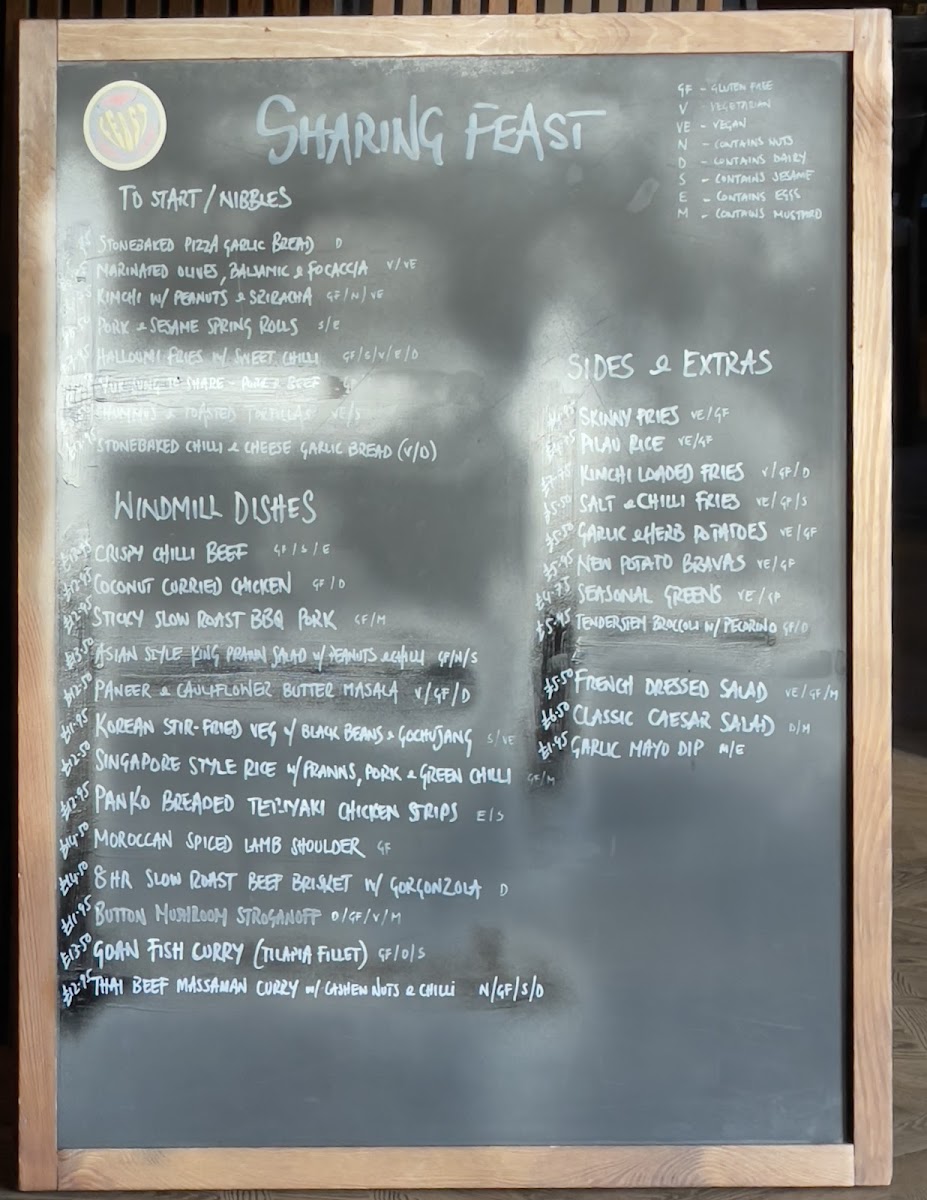 FEAST
SHARING FEAST
GF - GLUTEN FREE
V - VEGETARIAN
VE - VEGAN
N - CONTAINS NUTS
D - CONTAINS DAIRY
S - CONTAINS SESAME
E - CONTAINS EGGS
M - CONTAINS MUSTARD
TO START/NIBBLES
STONEBAKED PIZZA GARLIC BREAD D
MARINATED OLIVES, BALSAMIC & FOCACCIA V/VE
KIMCHI W/ PEANUTS & SRIRACHA GF/N/VE
PORK & SESAME SPRING ROLLS S/E
HALLOUMI FRIES W/ SWEET CHILLI GF/S/V/E/D
TO SHARE - PORK & BEEF
HUMMUS & TOASTED TORTILLAS VE/S
STONEBAKED CHILLI & CHEESE GARLIC BREAD (V/D)
WINDMILL DISHES
£12.95 CRISPY CHILLI BEEF GF/S/E
£12.95 COCONUT CURRIED CHICKEN GF/D
£12.95 STICKY SLOW ROAST BBQ PORK GF/M
£13.50 ASIAN STYLE KING PRAWN SALAD W/ PEANUTS & CHILLI GF/N/S
£12.50 PANEER & CAULIFLOWER BUTTER MASALA V/GF/D
£11.95 KOREAN STIR-FRIED VEG W/ BLACK BEANS & GOCHUJANG S/VE
£12.50 SINGAPORE STYLE RICE W/ PRAWNS, PORK & GREEN CHILLI GF/M
£12.95 PANKO BREADED TERIYAKI CHICKEN STRIPS E/S
£14.50 MOROCCAN SPICED LAMB SHOULDER GF
£14.50 8HR SLOW ROAST BEEF BRISKET W/ GORGONZOLA D
£11.95 BUTTON MUSHROOM STROGANOFF D/GF/V/M
£13.50 GOAN FISH CURRY (TILAPIA FILLET) GF/D/S
£12.95 THAI BEEF MASSAMAN CURRY W/ CASHEW NUTS & CHILLI N/GF/S/D
SIDES & EXTRAS
SKINNY FRIES VE/GF
PILAU RICE VE/GF
KIMCHI LOADED FRIES V/GF/D
£5.50 SALT & CHILLI FRIES VE/GF/S
£5.50 GARLIC & HERB POTATOES VE/GF
£5.95 NEW POTATO BRAVAS VE/GF
£4.75 SEASONAL GREENS VE/GF
£5.95 TENDERSTEM BROCCOLI W/ PECORINO GF/D
£5.50 FRENCH DRESSED SALAD VE/GF/M
£6.50 CLASSIC CAESAR SALAD D/M
£1.95 GARLIC MAYO DIP M/E